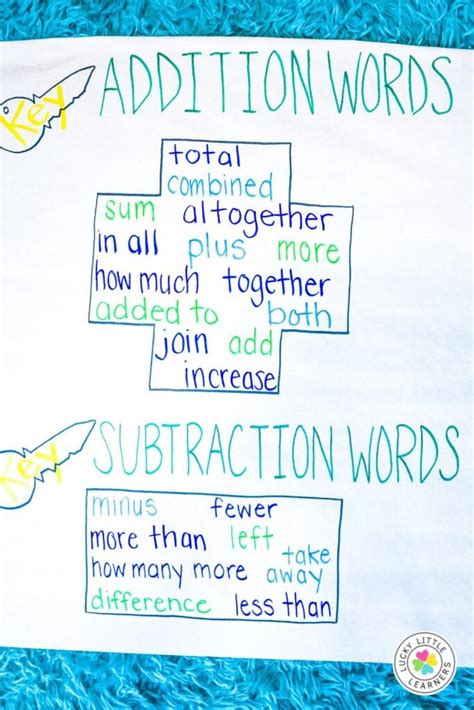 Key ADDITION WORDS
total
combined
sum altogether
in all plus more
how much together
added to both
join add
increase
Key SUBTRACTION WORDS
minus fewer
more than left
take
how many more away
difference less than
LUCKY LITTLE
LEARNERS